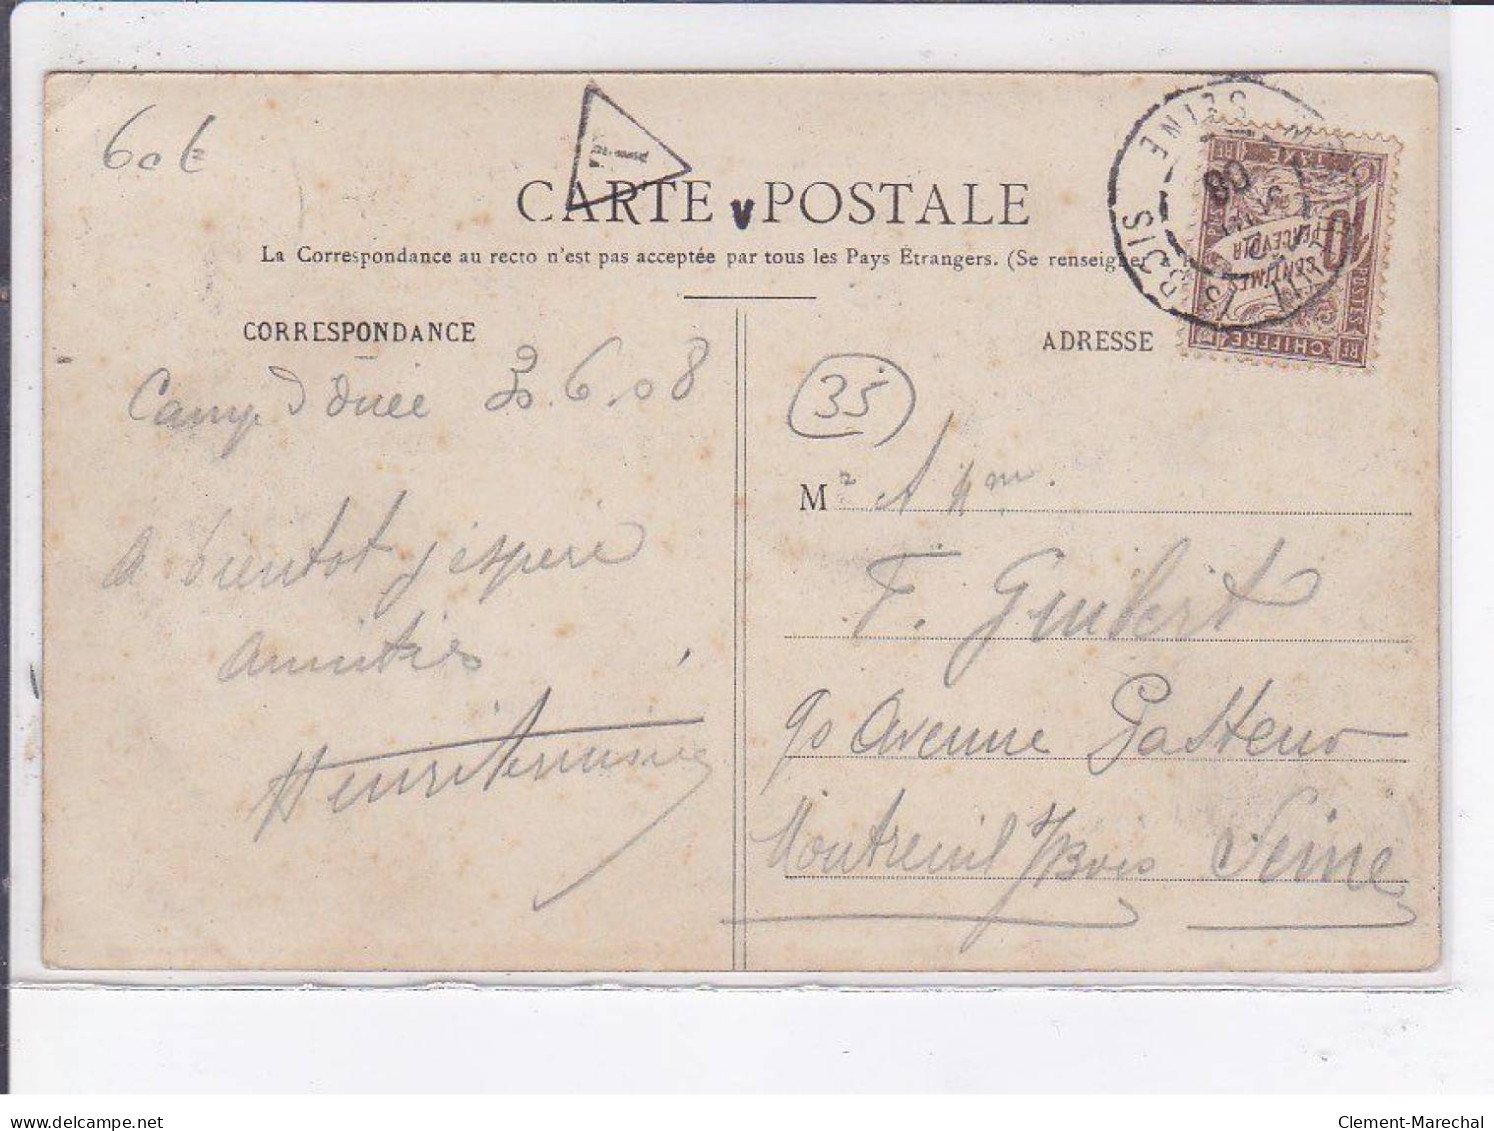 60 €
T
CARTE POSTALE
La Correspondance au recto n'est pas acceptée par tous les Pays Étrangers. (Se renseigner à
CORRESPONDANCE
ADRESSE
SEINE
BOIS
08
CHIFFRE TAXE
10
CENTIMES
À PERCEVOIR
POSTES
RF
Camp d 30.6.08
A bientot j'espere
amitiés
Henri
35
M
F. Guibert
90 Avenue Pasteur
Montreuil s/Bois Seine
Clement-Marechal
delcampe.net